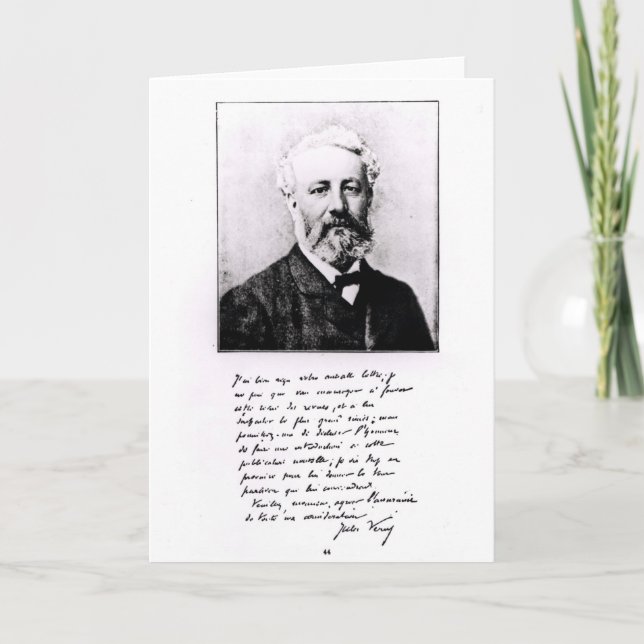 J'ai bien reçu votre aimable lettre; je
ne puis que vous encourager à fonder
cette revue des revues, et à lui
souhaiter le plus grand succès; mais
permettez-moi de décliner l'honneur
de faire une introduction à cette
publication nouvelle; je suis trop en
pour lui donner le
parrain qui lui conviendrait
Veuillez, monsieur, agréer l'assurance
de toute ma considération
Jules Verne
44